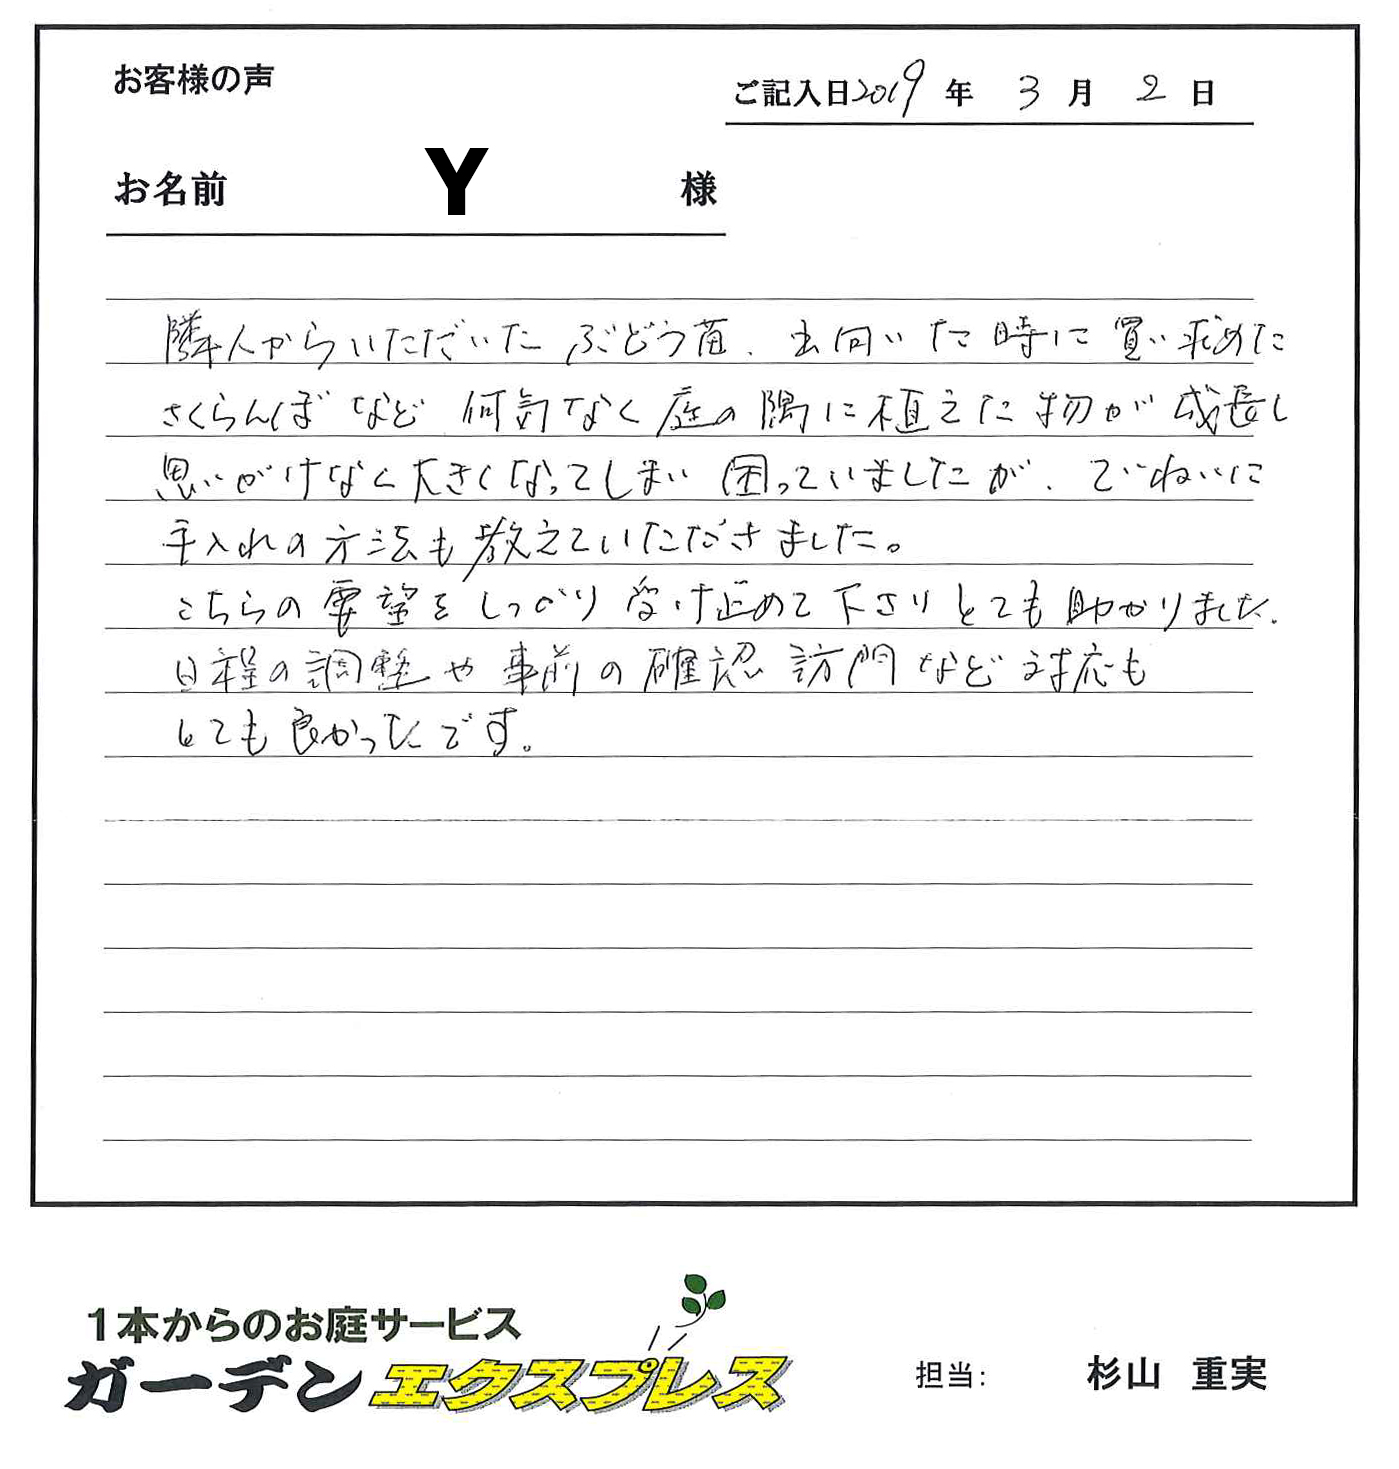 お客様の声
ご記入日2019年 3月 2日
お名前 Y 様
隣人からいただいた ぶどう苗、出向いた時に買い求めた
さくらんぼなど 何気なく庭の隅に植えた物が成長し
思いがけなく大きくなってしまい 困っていましたが、ていねいに
手入れの方法も教えていただきました。
こちらの要望をしっかり受け止めて下さりとても助かりました。
日程の調整や事前の確認訪問など対応も
とても良かったです。
1本からのお庭サービス
ガーデンエクスプレス
担当: 杉山 重実